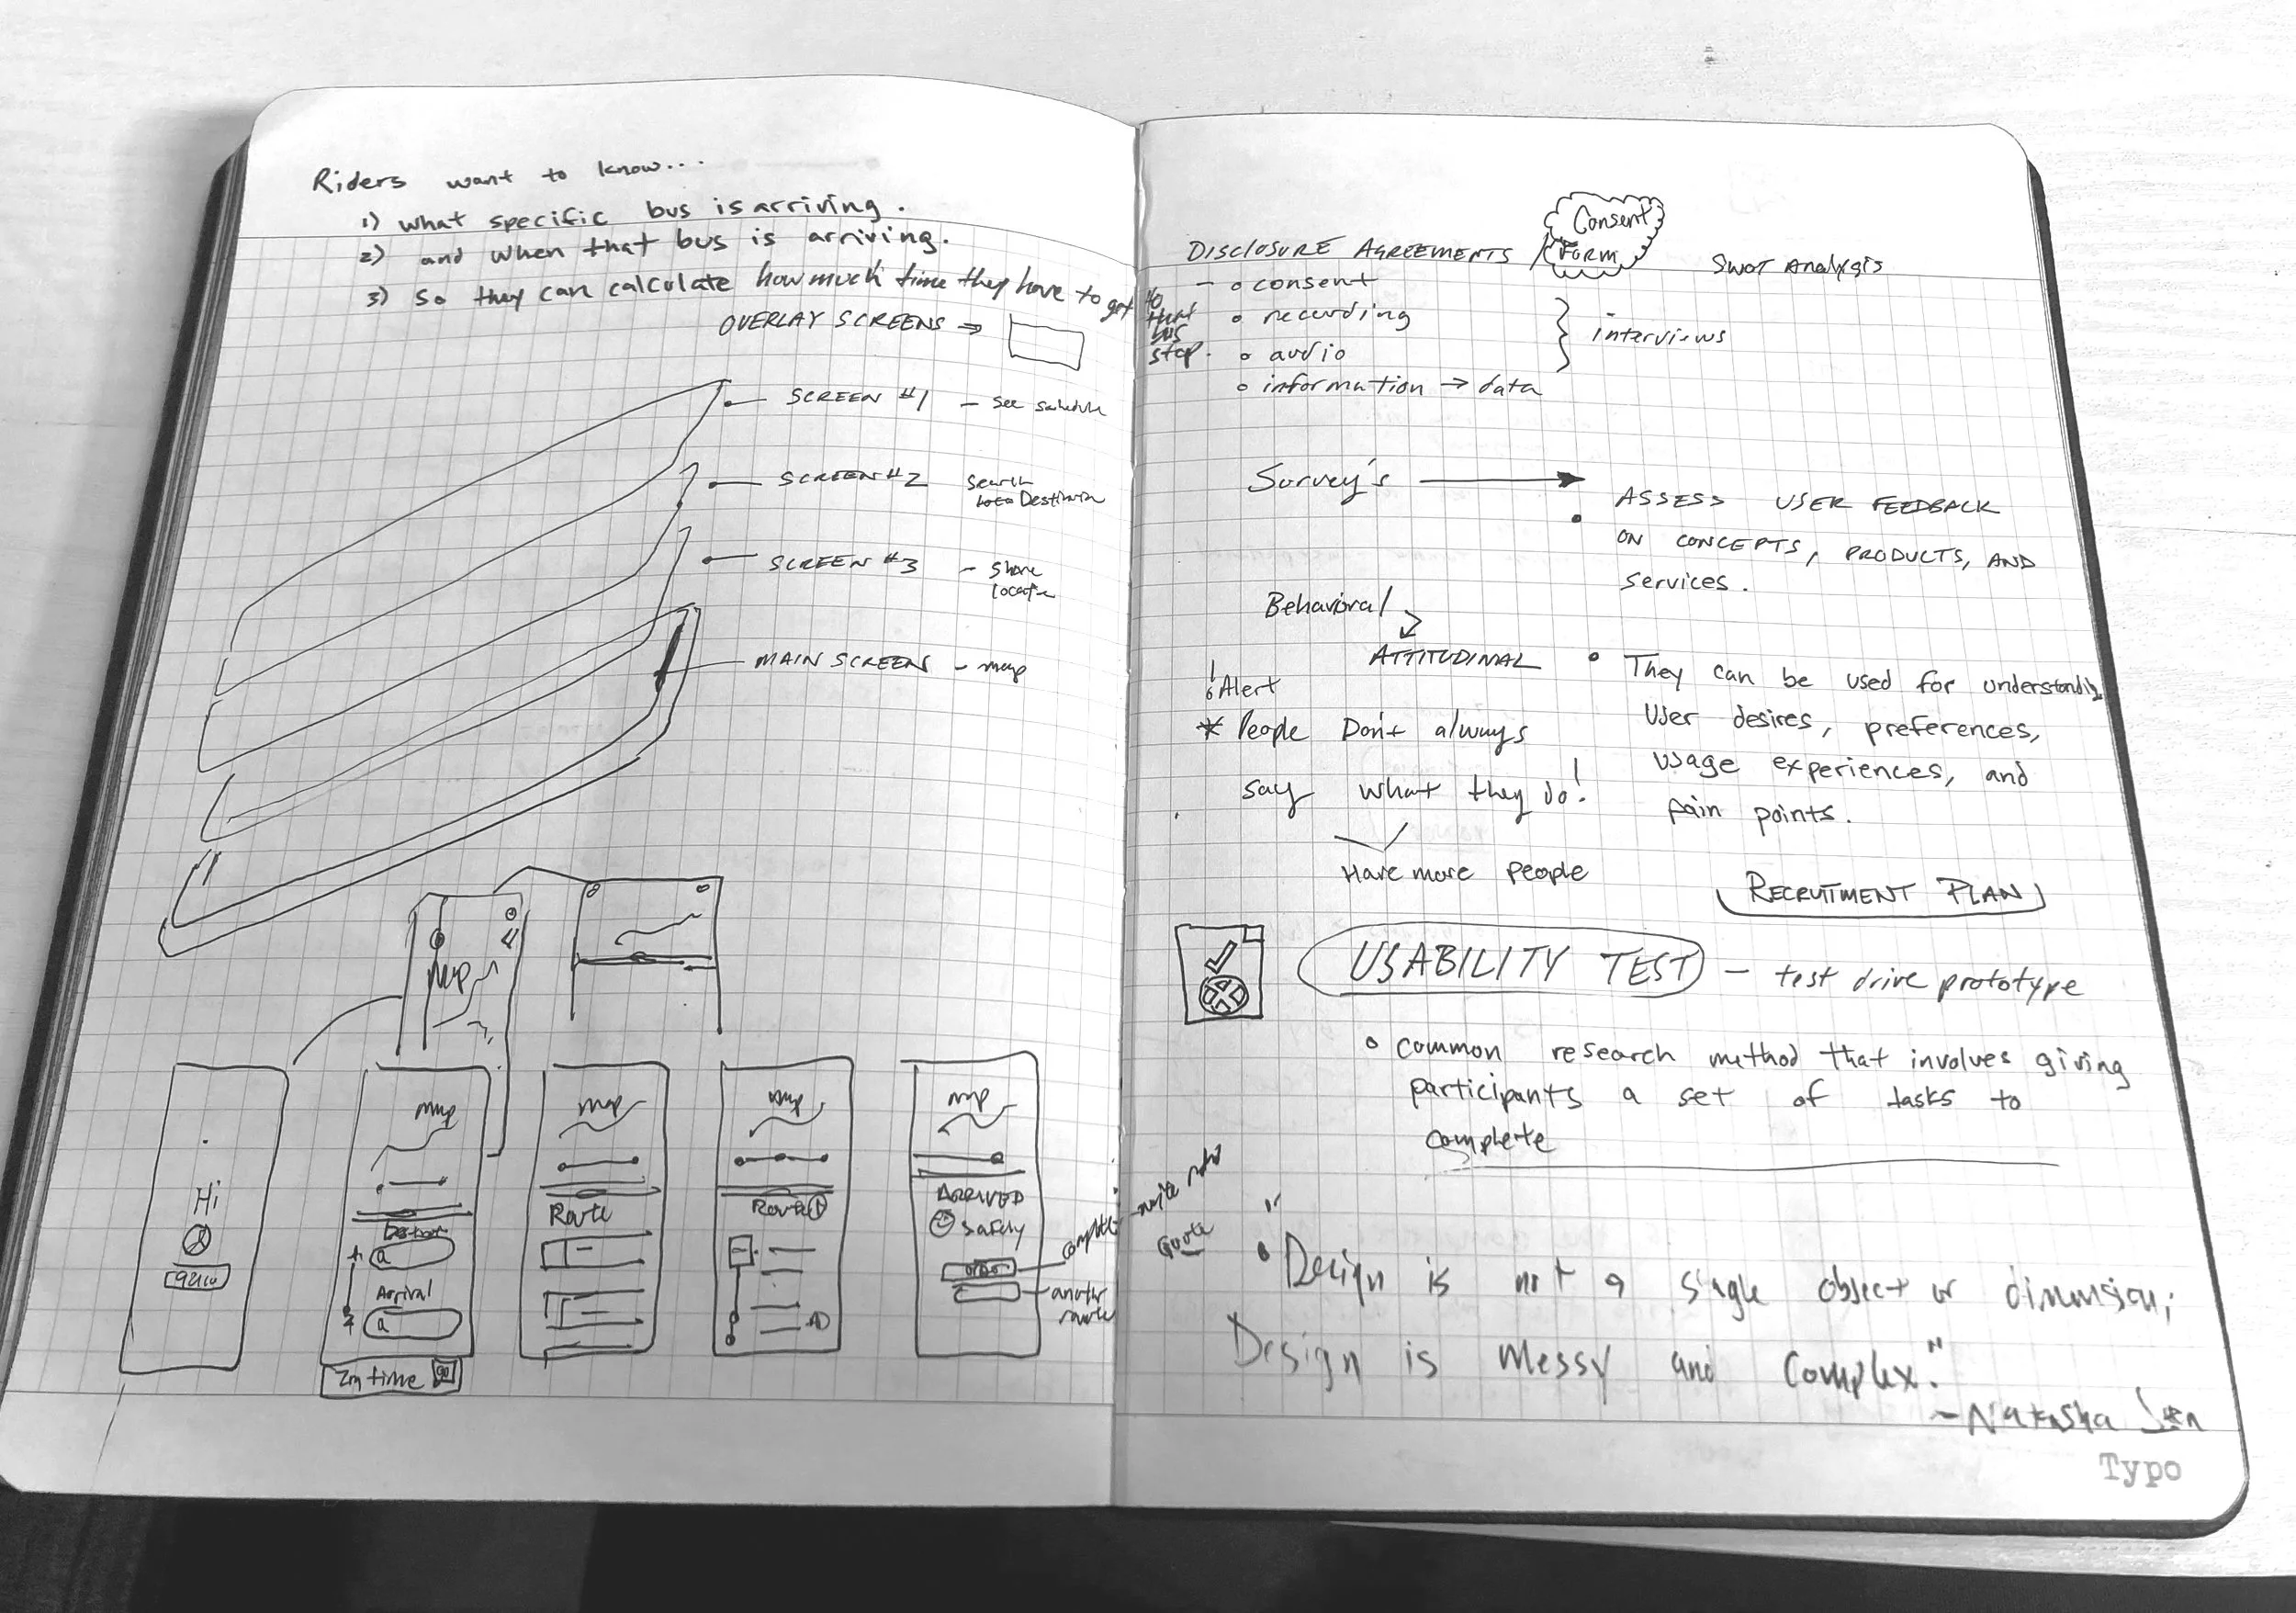 Riders want to know...
1) what specific bus is arriving.
2) and when that bus is arriving.
3) So they can calculate how much time they have to get to that bus stop.
OVERLAY SCREENS ⇒
SCREEN #1 - see schedule
SCREEN #2 search
Destination
SCREEN #3 - share
locate
MAIN SCREEN - map
map
Hi
map
Arrival
time
map
Route
map
Route
map
ARRIVED
safely
complete
another
route
DISCLOSURE AGREEMENTS / Consent
FORM
SWOT Analysis
- consent
recording
audio
interviews
information → data
Survey's
ASSESS USER FEEDBACK
ON CONCEPTS, PRODUCTS, AND
services.
Behavioral
ATTITUDINAL
! Alert
* People Don't always
say what they do!
Have more people
They can be used for understanding
User desires, preferences,
usage experiences, and
pain points.
RECRUITMENT PLAN
USABILITY TEST - test drive prototype
common research method that involves giving
participants a set of tasks to
complete
Quote
"Design is not a single object or dimension;
Design is messy and complex."
- Natasha Jen
Typo